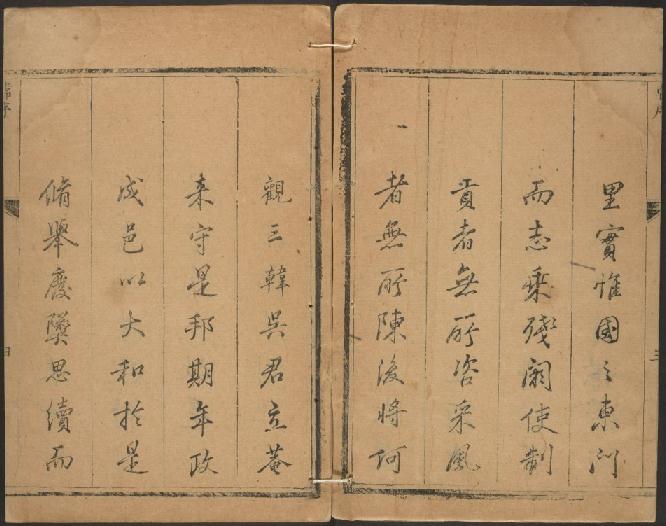 里實惟國之東門
而志乘殘闕使制
貢者無所咨采風
者無所陳後將何
觀三韓吳君立菴
来守是邦期年政
成邑以大和於是
脩舉廢墜思續而
三
四